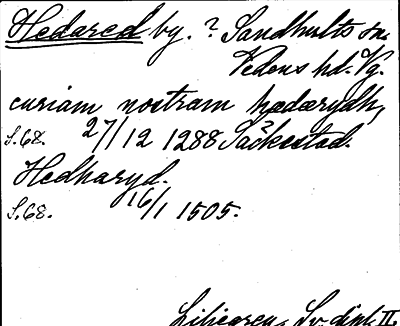 Hedared by. ? Sandhults sn.
Vedens hd. Vg.
curiam nostram hædærydh,
S.68. 27/12 1288 Säckestad.
Hedharyd.
S.68. 16/1 1505.
Sv. dipl. II